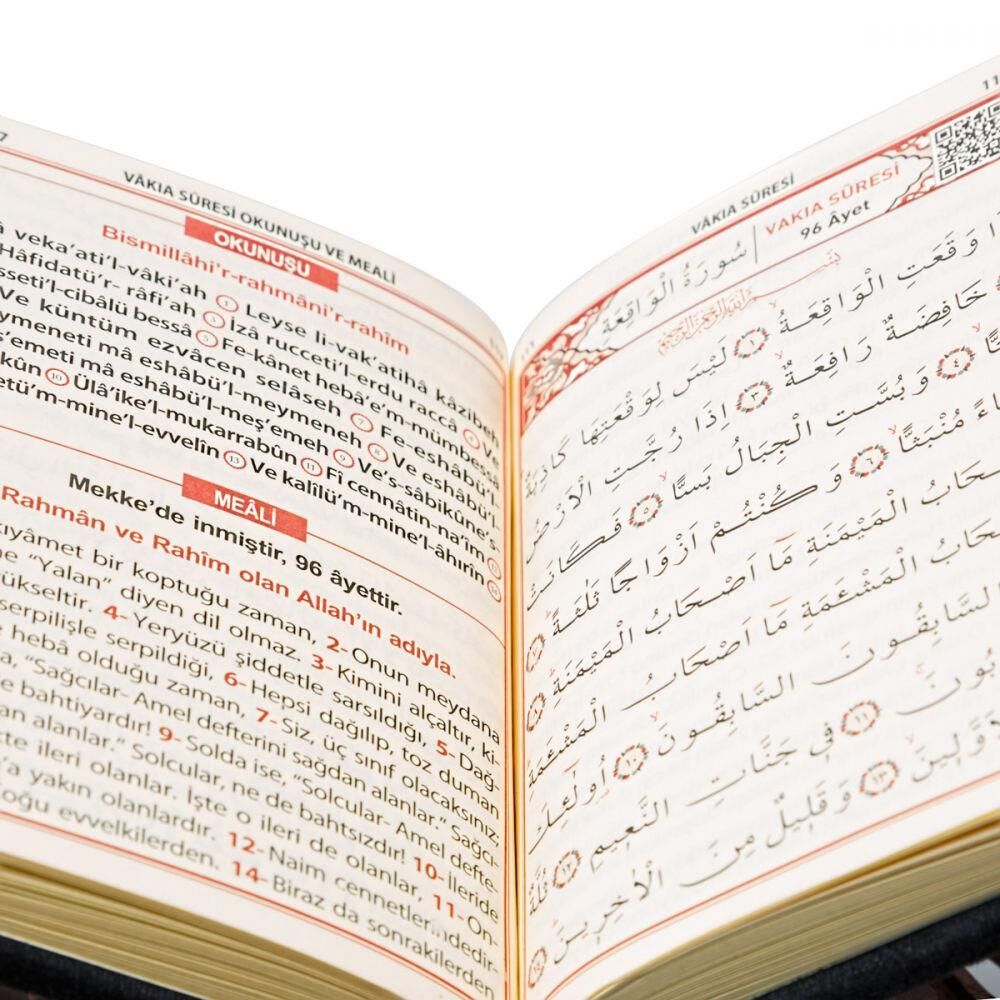 VÂKIA SÛRESİ OKUNUŞU VE MEALİ
OKUNUŞU
Bismillâhi'r-rahmâni'r-rahîm
veka'ati'l-vâki'ah 1 Leyse li-vak'atihâ kâzibeh
Hâfidatü'r- râfi'ah 3 İzâ rucceti'l-erdu raccâ 4 Ve
sseti'l-cibâlü bessâ 5 Fe-kânet hebâ'e'm-mümbessâ
Ve küntüm ezvâcen selâseh 7 Fe-eshâbü'l-
ymeneti mâ eshâbü'l-meymeneh 8 Ve eshâbü'l-
ş'emeti mâ eshâbü'l-meş'emeh 9 Ve's-sâbikûne's-
kûn 10 Ülâ'ike'l-mukarrabûn 11 Fî cennâtin-na'îm 12
etü'm-mine'l-evvelîn 13 Ve kalîlü'm-mine'l-âhirîn 14
MEÂLİ
Mekke'de inmiştir, 96 âyettir.
Rahmân ve Rahîm olan Allah'ın adıyla.
kıyâmet bir koptuğu zaman, 2- Onun meydana
ne "Yalan" diyen dil olmaz. 3- Kimini alçaltır, ki-
yükseltir. 4- Yeryüzü şiddetle sarsıldığı, 5- Dağ-
serpilişle serpildiği, 6- Hepsi dağılıp, toz duman
heba olduğu zaman, 7- Siz, üç sınıf olacaksınız;
a, "Sağcılar- Amel defterini sağdan alanlar." Sağcı-
e bahtiyardır! 9- Solda ise, "Solcular- Amel defte-
an alanlar." Solcular, ne de bahtsızdır! 10- İleride
te ileri olanlar. İşte o ileri de olanlar, 11- On-
'a yakın olanlardır. 12- Naim cennetlerindedir-
Çoğu evvelkilerden. 14- Biraz da sonrakilerden
11
VÂKIA SÛRESİ
سُورَةُ الْوَاقِعَةِ
VAKIA SÛRESİ
96 Âyet
بِسْمِ اللّٰهِ الرَّحْمٰنِ الرَّحِيمِ
وَقَعَتِ الْوَاقِعَةُ ﴿١﴾ لَيْسَ لِوَقْعَتِهَا كَاذِبَةٌ
خَافِضَةٌ رَافِعَةٌ ﴿٣﴾ اِذَا رُجَّتِ الْاَرْضُ
﴿٤﴾ وَبُسَّتِ الْجِبَالُ بَسًّا ﴿٥﴾ فَكَانَتْ
مُنْبَثًّا ﴿٦﴾ وَكُنْتُمْ اَزْوَاجًا ثَلٰثَةً ﴿٧﴾
حَابُ الْمَيْمَنَةِ مَٓا اَصْحَابُ الْمَيْمَنَةِ ﴿٨﴾
حَابُ الْمَشْـَٔمَةِ مَٓا اَصْحَابُ الْمَشْـَٔمَةِ
السَّابِقُونَ السَّابِقُونَ ﴿١٠﴾ اُو۬لٰٓئِكَ
بُونَ ﴿١١﴾ فِي جَنَّاتِ النَّعِيمِ ﴿١٢﴾ ثُلَّةٌ
وَّلِينَ ﴿١٣﴾ وَقَلِيلٌ مِنَ الْاٰخِرِينَ ﴿١٤﴾